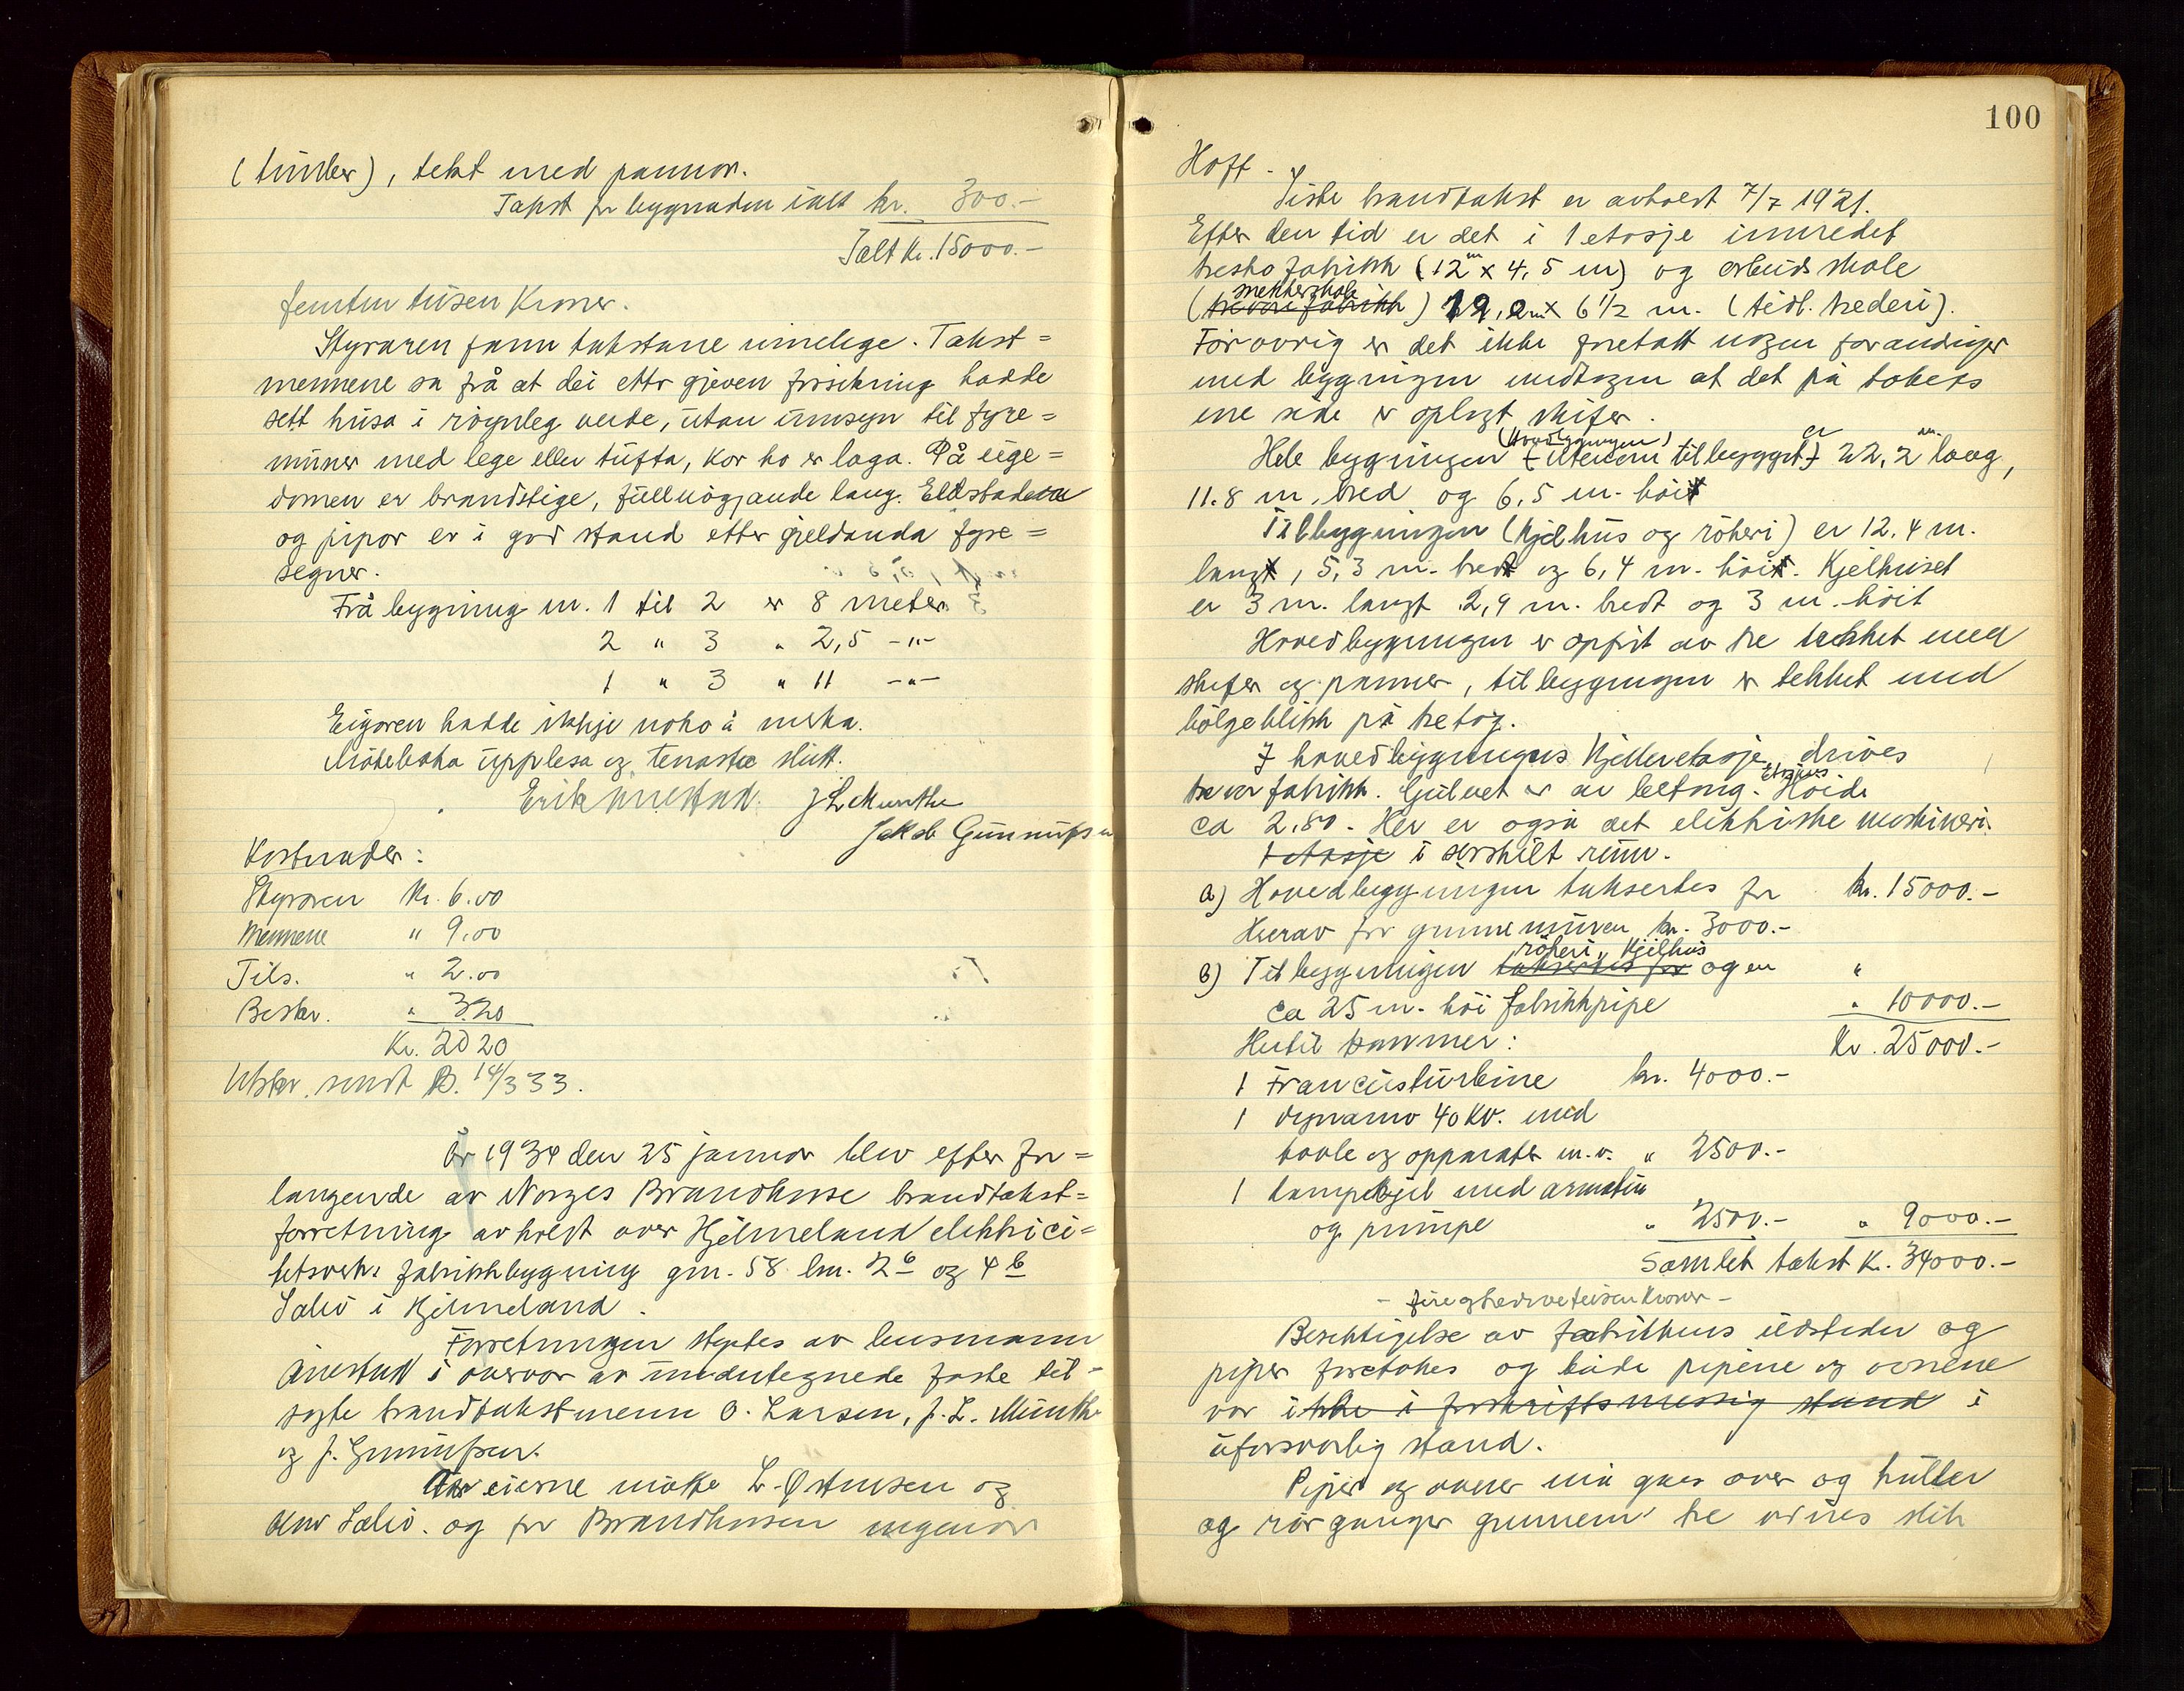 (timber), tekt med pannor.
Takst for bygnaden ialt kr. 300.-
Ialt kr. 15000.-
femten tusen Kroner.
Styraren fann takstane rimelege. Takst=
mennene sa frå at dei etter gjeven forsikring hadde
sett husa i røynleg verde, utan umsyn til fyre=
muner med lege eller tufta, kor ho er laga. På eige=
domen er brandstige, fullnøgjande lang. Eldstadene
og pipor er i god stand etter gjeldanda fyre=
segner.
Frå bygning nr. 1 til 2 er 8 meter
2 " 3 " 2,5 -"-
1 " 3 " 11 -"-
Eigaren hadde ikkje noko å merka.
Møteboka upplesa og tenasta slutt.
Erik Anestad. J L Munthe
Jakob Gunnufsen
Kostnader:
Styraren Kr. 6.00
Mennene " 9.00
Tils. " 2.00
Beskr. " 3.20
Kr. 20 20
Utskr. sendt B. 14/3 33.
År 1934 den 25 januar blev efter for=
langende av Norges Brandkasse brandtakst=
forretning avholdt over Hjelmeland elektrici=
tetsverks fabrikkbygning gnr. 58 bnr. 2 b og 4 b
Sælid i Hjelmeland.
Forretningen styrtes av lensmann
Anestad i overvær av undertegnede faste til=
sagte brandtakstmenn O. Larsen, J. L. Munthe
og J. Gunnufsen.
Av eierne møtte L. Østensen og
Sælid. og for Brandkassen ingen
100
Hoff.
Siste brandtakst er avholdt 7/7 1921.
Efter den tid er det i 1 etasje innredet
treskofabrikk (12 m x 4,5 m) og arbeidskole
(trevarefabrikk snekkerskole) 12,2 m x 6 1/2 m. (tidl. trederi).
Forøvrig er det ikke foretatt nogen forandringer
med bygningen undtagen at det på takets
ene side er oplagt skifer.
Hele bygningen (Hovedbygningen) (utenom tilbygget) er 22,2 m. lang,
11.8 m. bred og 6,5 m. høit
Tilbygningen (kjelhus og røkeri) er 12.4 m.
langt, 5,3 m. bredt og 6,4 m. høit. Kjelhuset
er 3 m. langt 2,9 m. bredt og 3 m. høit
Hovedbygningen er opført av tre tekket med
skifer og panner, tilbygningen er tekket med
bølgeblikk på tretag.
I hovedbygningens kjelleretasje drives
trevarefabrikk. Gulvet er av betong. Etasjens Høide
ca 2.80. Her er også det elektriske maskineri
1 etasje i særskilt rum.
a) Hovedbygningen takseres for kr. 15000.-
Herav for grunnmuren kr. 3000.-
b) Tilbygningen takseres for røkeri, kjelhus og en "
ca 25 m. høi fabrikkpipe " 10000.-
Hertil kommer: Kr. 25000.-
1 Francisturbine kr. 4000.-
1 dynamo 40 KV. med
tavle og apparater m.v. " 2500.-
1 dampkjel med armatur
og pumpe " 2500.- " 9000.-
Samlet takst K. 34000.-
- fireogtredivetusen kroner -
Besiktigelse av fabrikkens ildsteder og
piper foretokes og både pipene og ovnene
var ikke i forskriftsmessig stand i
uforsvarlig stand.
Piper og ovner må gåes over og huller
og rørganger gjennem tre ordnes slik